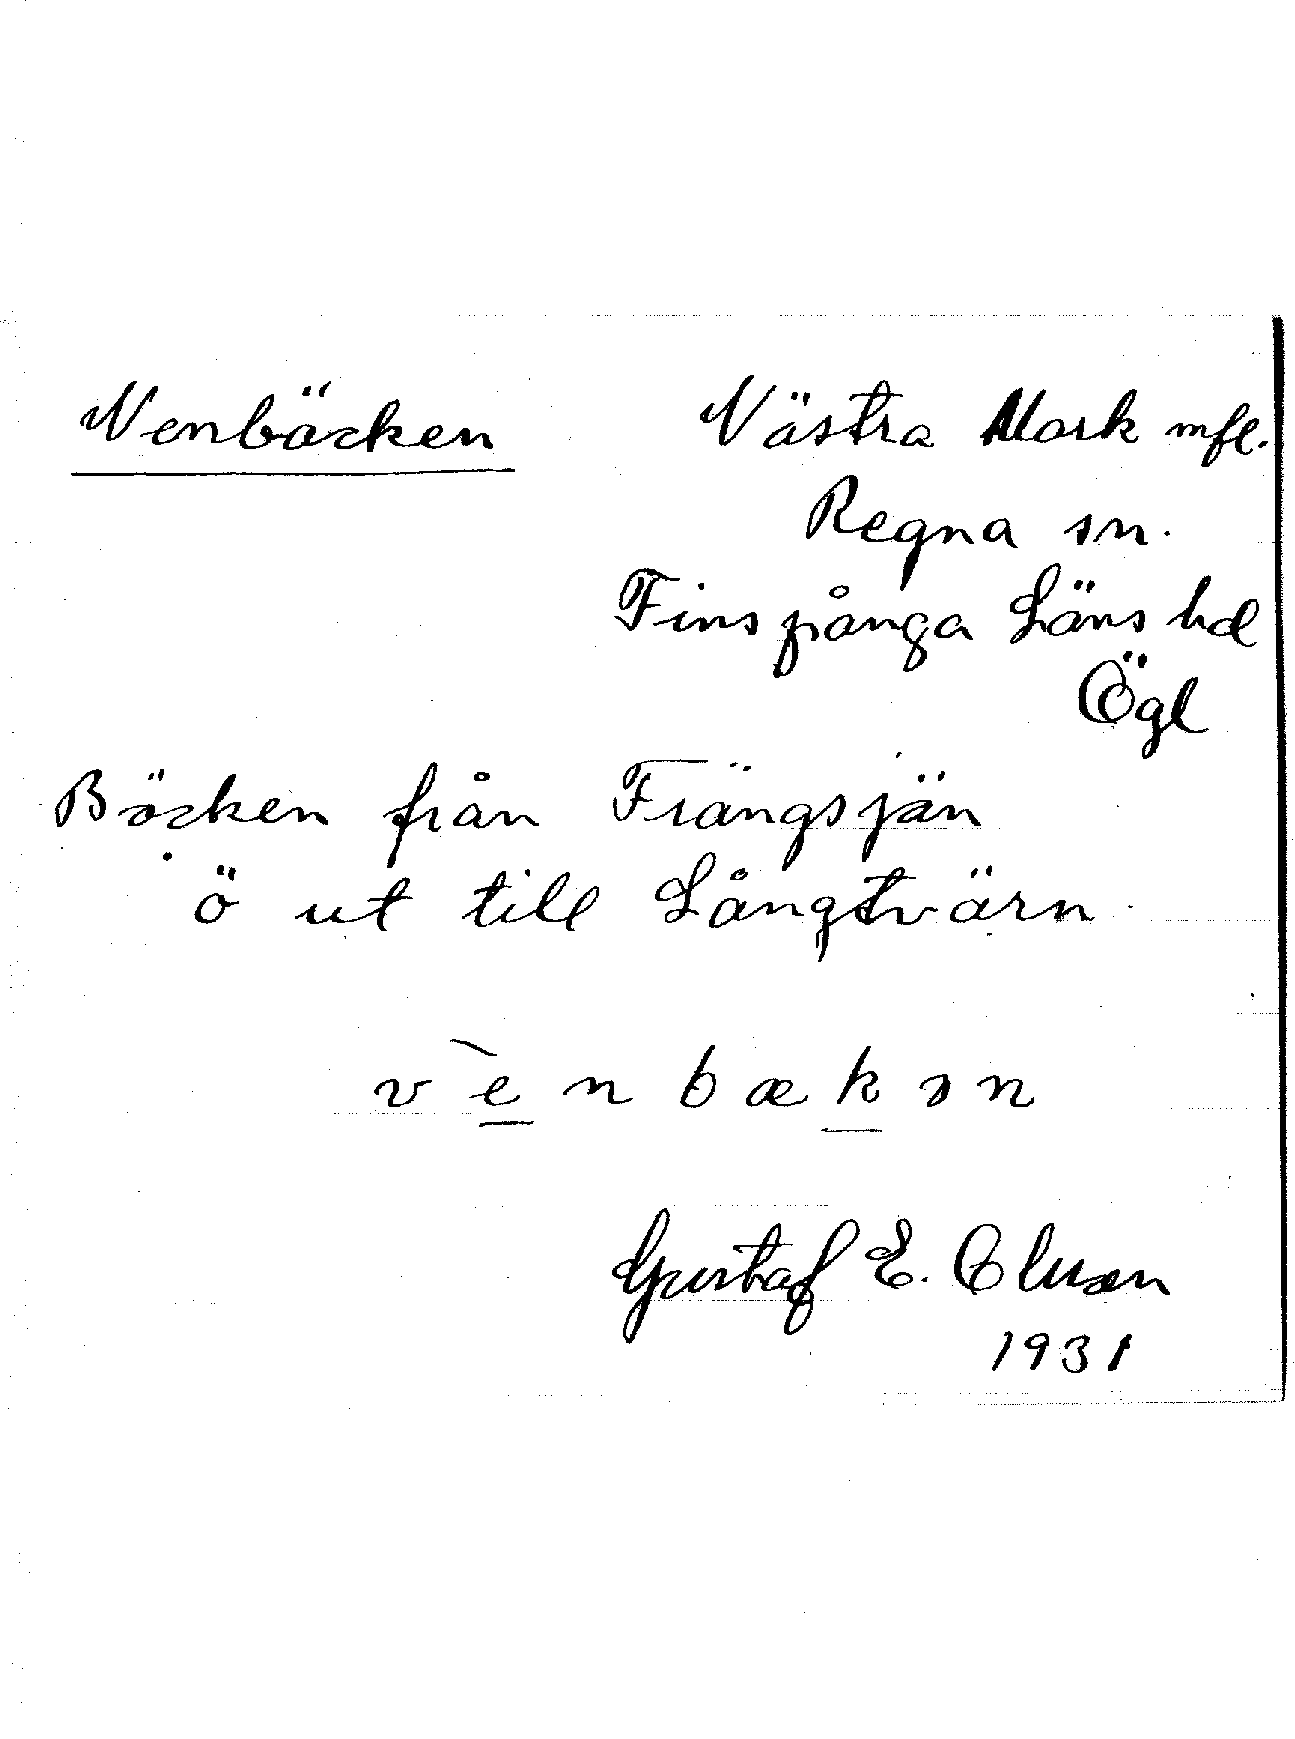 Venbäcken
Västra Mark mfl.
Regna sn.
Finspånga Läns hd
Ögl
Bäcken från Frängsjän
ö ut till Långtvärn
v è n b æ k ə n
Gustaf E. Olsson
1931